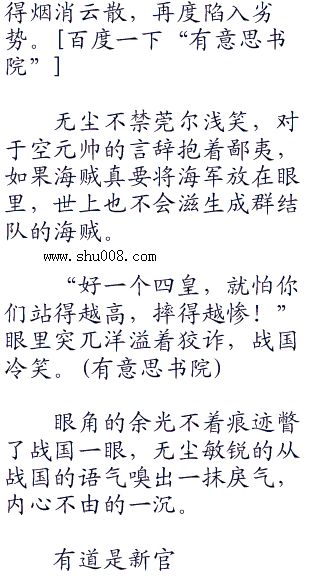 得烟消云散，再度陷入劣
势。[百度一下“有意思书
院”]
无尘不禁莞尔浅笑，对
于空元帅的言辞抱着鄙夷，
如果海贼真要将海军放在眼
里，世上也不会滋生成群结
队的海贼。
www.shu008.com
“好一个四皇，就怕你
们站得越高，摔得越惨！”
眼里突兀洋溢着狡诈，战国
冷笑。(有意思书院)
眼角的余光不着痕迹瞥
了战国一眼，无尘敏锐的从
战国的语气嗅出一抹戾气，
内心不由的一沉。
有道是新官